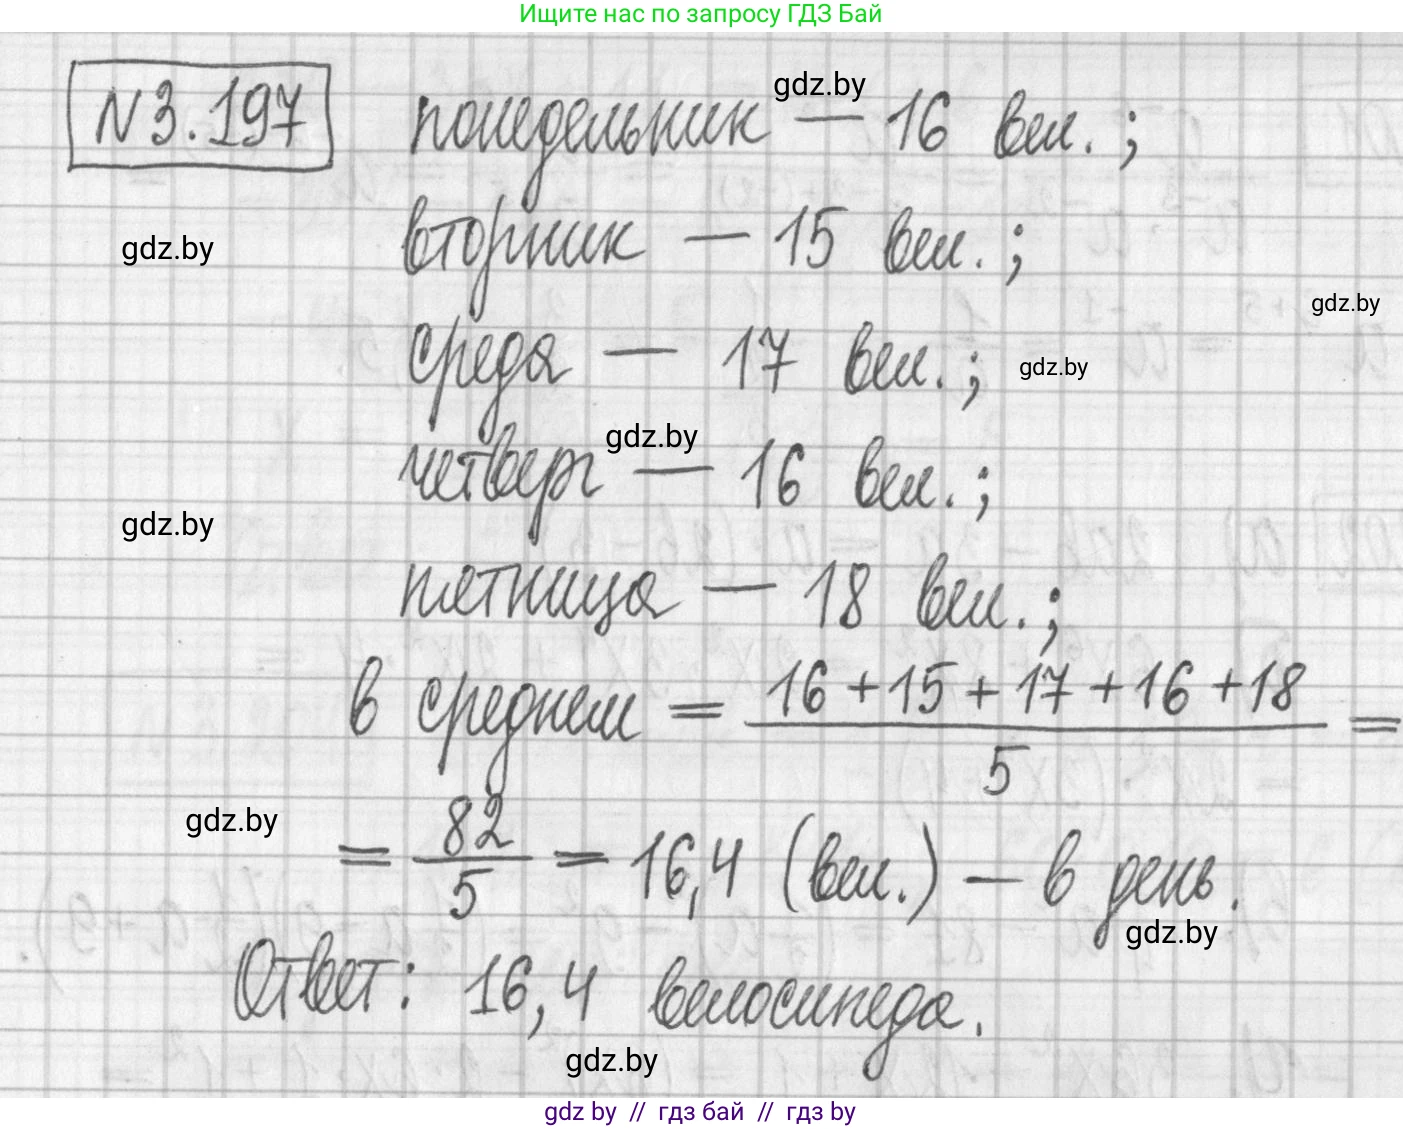 Ищите нас по запросу ГДЗ Бай
gdz.by
№3.197 понедельник — 16 вел.;
gdz.by
вторник — 15 вел.;
gdz.by
среда — 17 вел.;
gdz.by
gdz.by
четверг — 16 вел.;
gdz.by
пятница — 18 вел.;
в среднем = (16 + 15 + 17 + 16 + 18) / 5 =
gdz.by
= 82 / 5 = 16,4 (вел.) — в день.
gdz.by
Ответ: 16,4 велосипеда.
gdz.by
gdz by // гдз бай // гдз by